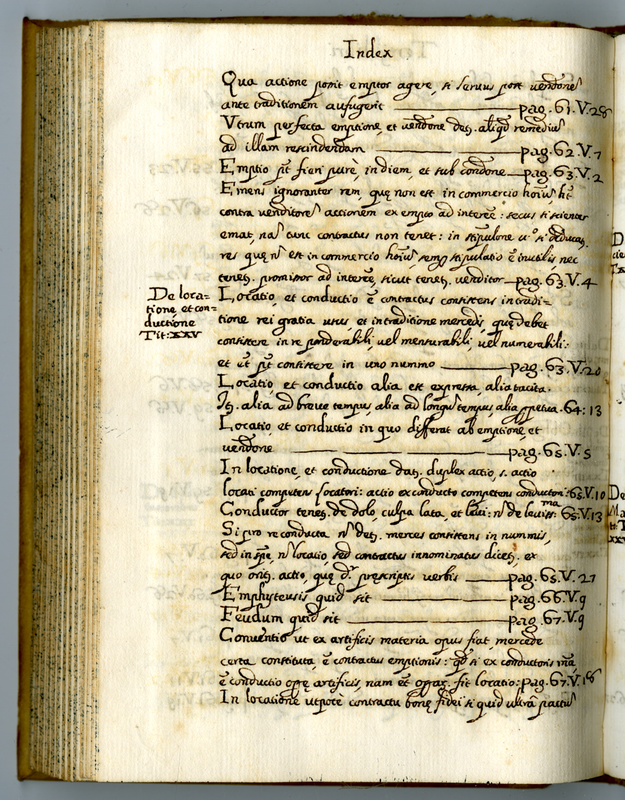 Index
Qua actione possit emptor agere, si servus post vendone
ante traditionem aufugerit pag. 61. V. 28
Utrum perfecta emptione, et vendone det. aliqd remediu
ad illam rescindendam pag. 62 V. 7
Emptio pit fieri pure, in diem, et sub condone pag. 63. V. 2
Emens ignoranter rem, quę non est in commercio hoiu ht
contra venditore actionem ex empto ad interee: secus si scienter
emat, na tunc contractus non tenet: in stipulone
res que n est in commercio hoiu, semp stipulatio ē inutilis, nec
tenet. promissor ad interee, sicut tenet. venditor pag. 63. V. 4
De loca=
tione, et con=
ductione
Tit: XXV
Locatio, et conductio ē contractus consistens in tradi=
tione rei gratia usus, et in traditione mercedis, quę debet
consistere in re ponderabili, vel mensurabili, vel numerabili:
et ēt pit consistere in uno nummo pag. 63. V. 20
Locatio, et conductio alia est expressa, alia tacita.
It. alia ad breve tempus, alia ad longu tempus, alia ppetua. 64: 13
Locatio, et conductio in quo differat ab emptione, et
vendone pag. 65. V. 5
In locatione, et conductione dat. duplex actio, s. actio
locati competens locatori: actio ex conducto competens conductori: 65. V. 10
Conductor tenet. de dolo, culpa lata, et levi: n de leviss.ma 65. V. 13
Si pro re conducta n det. merces consistens in nummis,
sed in spe, n locatio, sed contractus innominatus dicet. ex
quo orit. actio, quę dr prescriptis verbis pag. 65. V. 27
Emphyteusis quid sit pag. 66. V. 9
Feudum quid sit pag. 67. V. 9
Conventio ut ex artificis materia opus fiat, mercede
certa constituta, ē contractus emptionis: qd si ex conductoris ma
ē conductio opę artificis, nam ēt opar. fit locatio: pag. 67. V. 18
In locatione utpotè contractu bonę fidei si quid ultra pactu